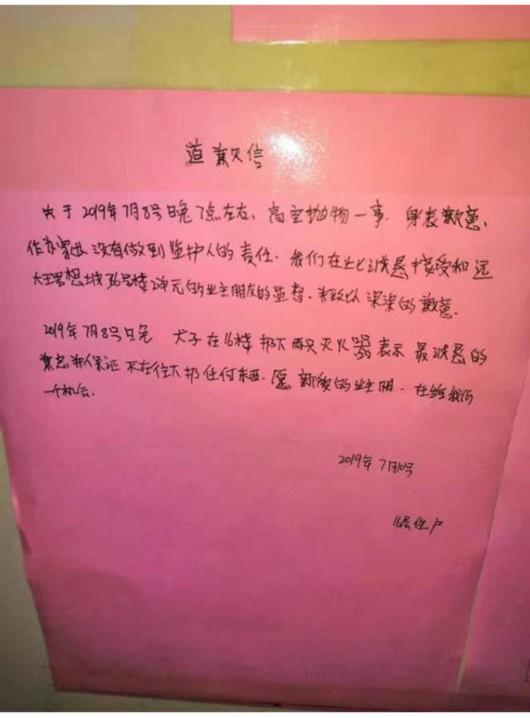 道歉信
关于2019年7月8号日晚7点左右,高空抛物一事.身表歉意,
作为家长没有做到监护人的责任.我们在此诚恳接受和远
大理想城36号楼2单元的业主朋友的监督.未致以深深的歉意.
2019年7月8号日晚 犬子在16楼扔下两只灭火器表示最诚恳的
兼忠并保证不在往下扔任何东西.愿 的业主朋.在给我们
一个机会.
2019年7月10号
16层住户